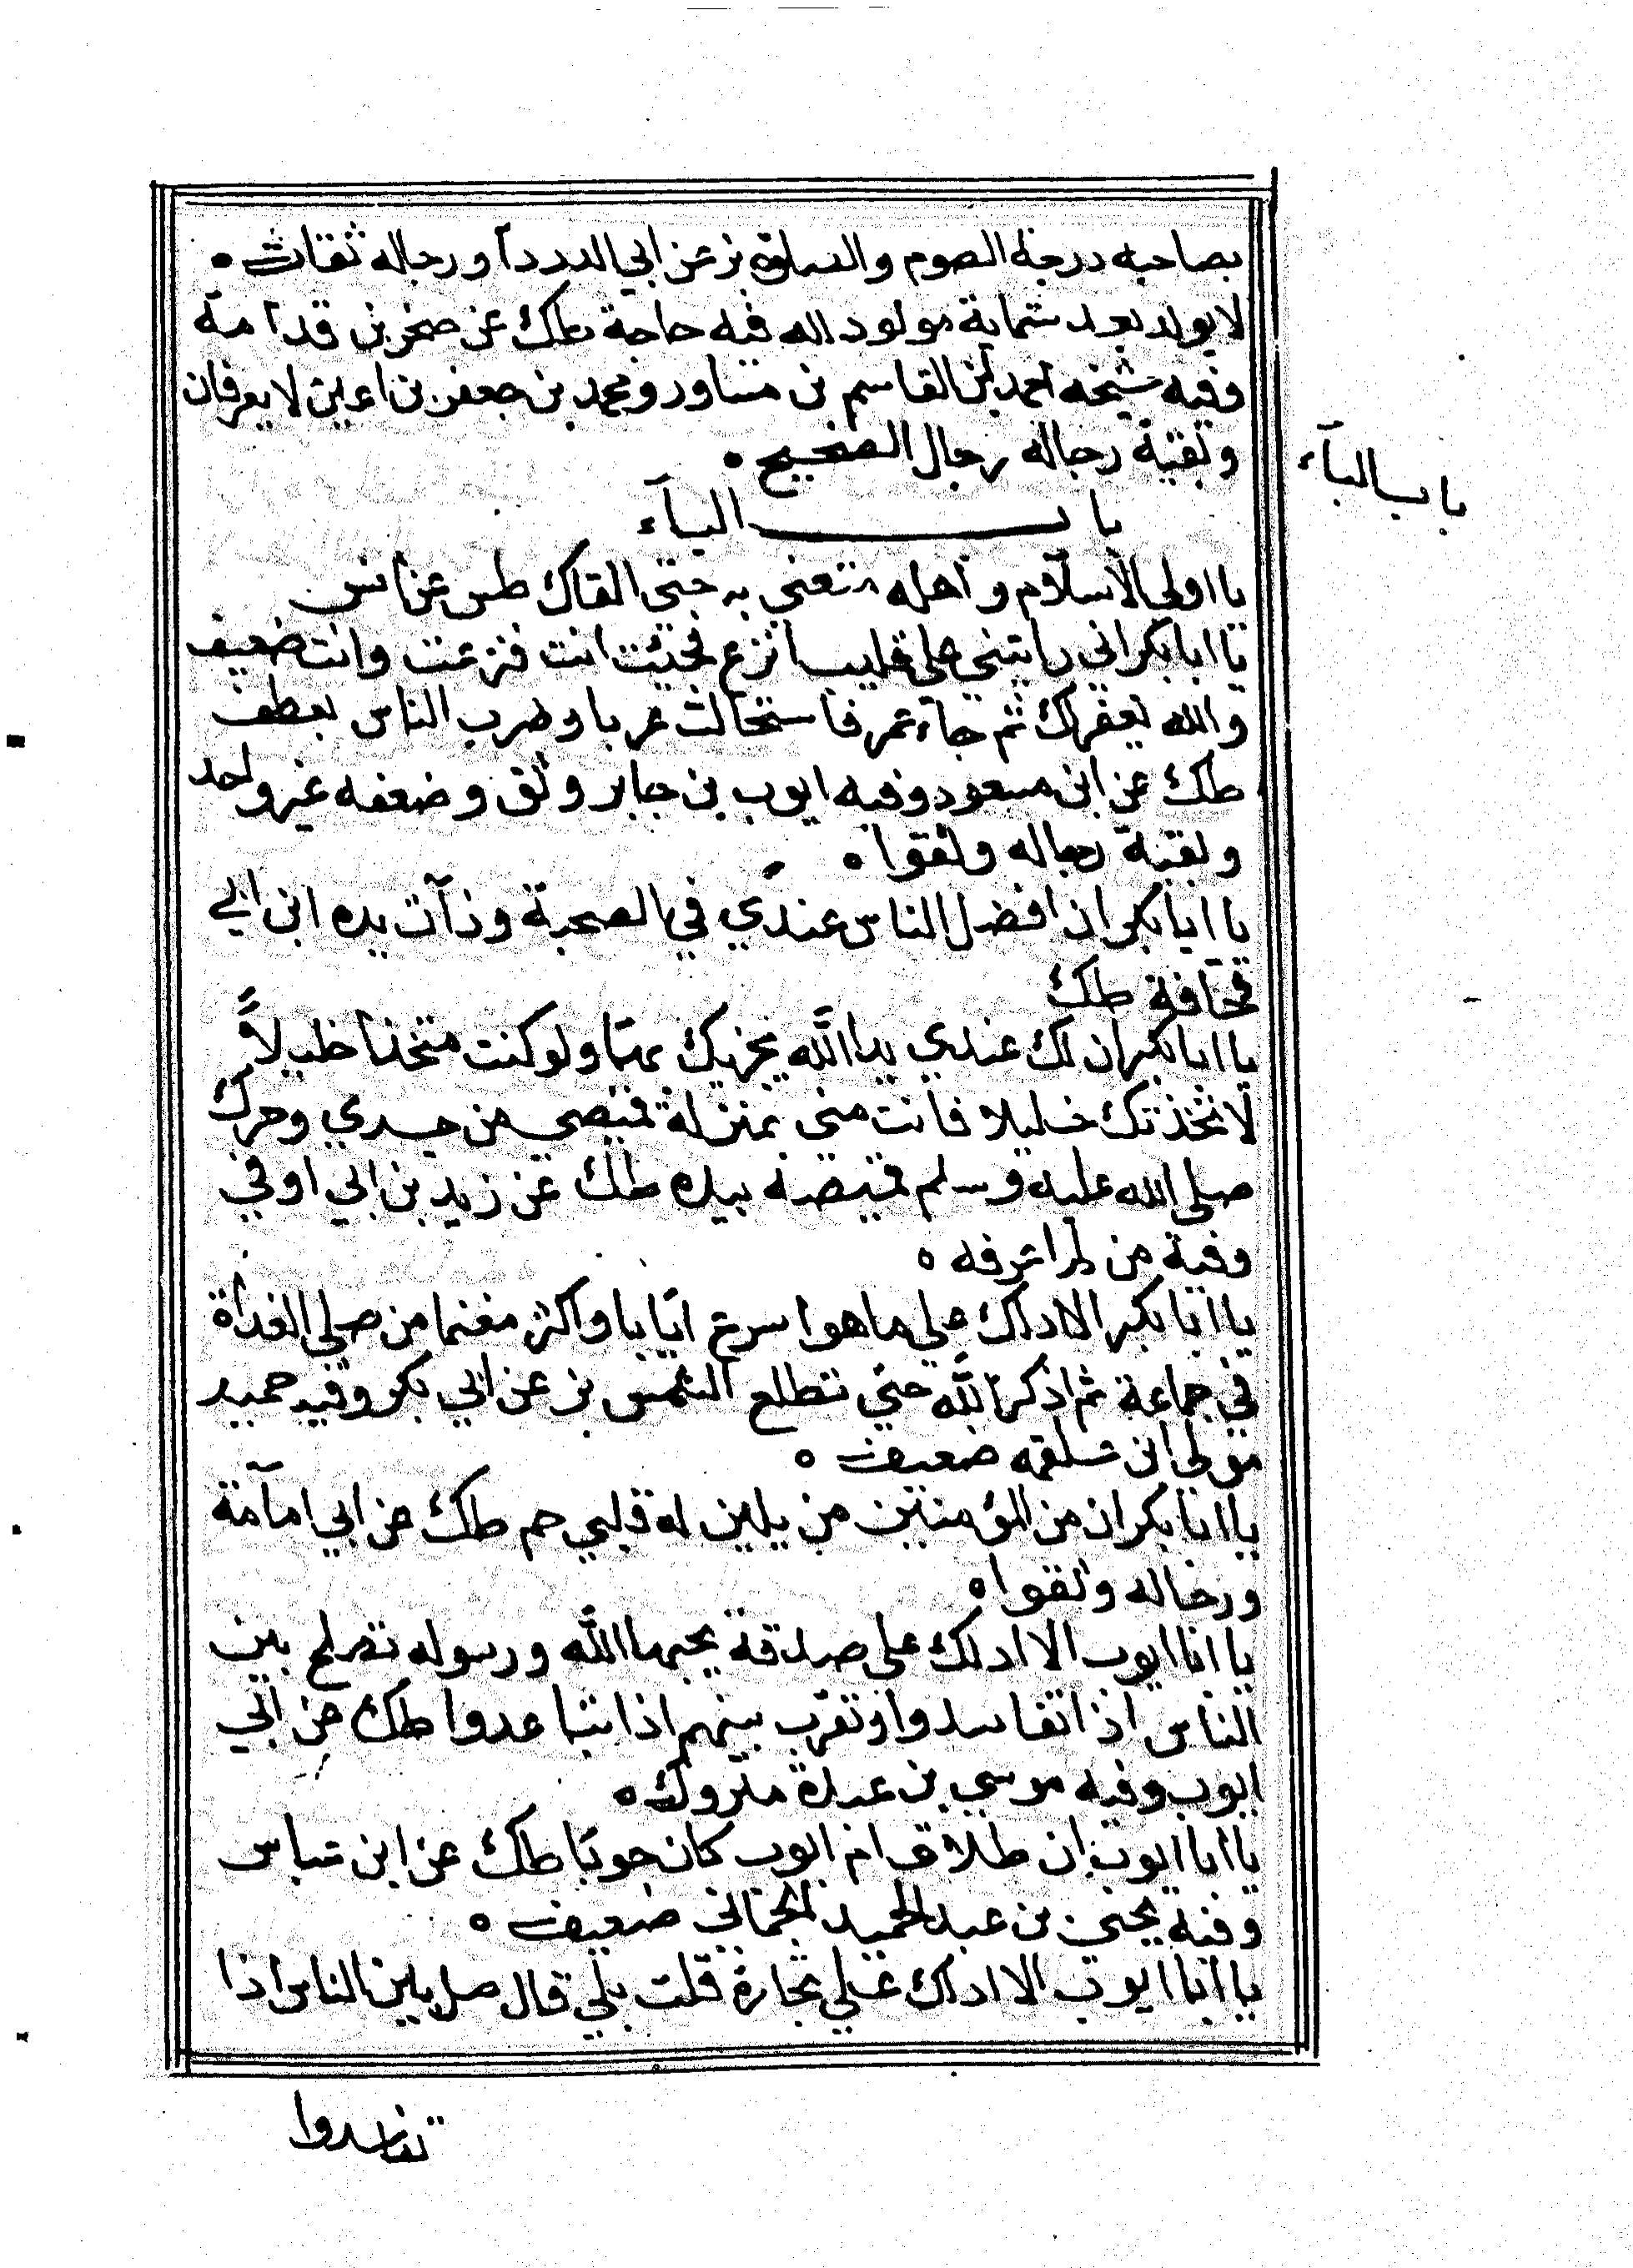 بصاحبه درجة الصوم والصلوة بز عن ابي الدردآ ورجاله ثقات ه
لا يولد بعد ستماية مولود الله فيه حاجة طك عن صخر بن قدامة
وفيه شيخه احمد بن القاسم بن مساور ومحمد بن جعفر بن اعين لا يعرفان
وبقية رجاله رجال الصحيح ه
باب اليآء
باب اليآء
يا اولي الاسلام واهله متعني به حتى القاك طس عن انس
يا ابا بكر اني رايتني على قليب انزع فجئت انت فنزعت وانت ضعيف
والله يغفر لك ثم جآء عمر فاستحالت غربا وضرب الناس بعطن
طك عن ابن مسعود وفيه ايوب بن جابر وثق وضعفه غير واحد
وبقية رجاله وثقوا ه
يا ابا بكر ان افضل الناس عندي في الصحبة وذات يده ابن ابي
قحافة طك
يا ابا بكر ان لك عندي يدا الله يجزيك بها ولو كنت متخذا خليلاً
لاتخذتك خليلا فانت مني بمنزلة قميصي من جسدي وحرك
صلى الله عليه وسلم قميصه بيده طك عن زيد بن ابي اوفي
وفية من لم اعرفه ه
يا ابا بكر الا ادلك على ما هو اسرع ايابا واكثر مغنما من صلى الغداة
في جماعة ثم اذكر الله حتي تتطلع الشمس بز عن ابي بكر وفيه حميد
مولى ابن علقمه ضعيف ه
يا ابا بكر ان من المؤمنين من يلين له قلبي حم طك عن ابي امامة
ورجاله وثقوا ه
يا ابا ايوب الا ادلك على صدقة يحبها الله ورسوله تصلح بين
الناس اذا تفاسدوا وتقرب بينهم اذا تباعدوا طك عن ابي
ايوب وفيه موسي بن عبيدة متروك ه
يا ابا ايوب ان طلاق ام ايوب كان حوبا طك عن ابن عباس
وفيه يحيى بن عبد الحميد الحماني ضعيف ه
يا ابا ايوب الا ادلك على تجارة قلت بلي قال صل بين الناس اذا
تفاسدوا